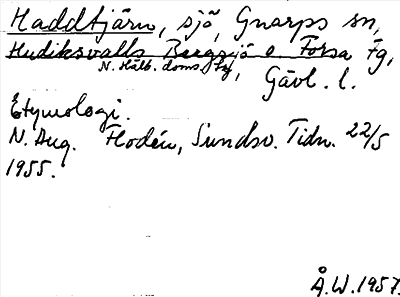 Haddtjärn, sjö, Gnarps sn,
Hudiksvalls Bergsjö o. Forsa Fg,
N. Häls. doms. fög, Gävl. l.
Etymologi.
N. Aug. Flodén, Sundsv. Tidn. 22/5
1955.
Å.W.1957.